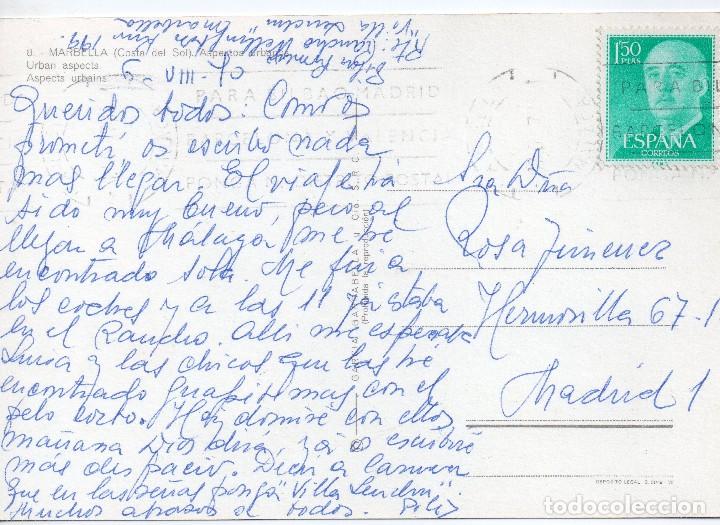 8. - MARBELLA (Costa del Sol). Aspectos urbanos
Urban aspects
Aspects urbains
5-VIII-70
Queridos todos: Como os
prometí os escribo nada
mas llegar. El viaje ha
sido muy bueno, pero al
llegar a Málaga me he
encontrado sola. Me fui a
los coches y a las 11 ya estaba
en el Rancho. Alli me esperaba
Luisa y las chicas que las he
encontrado guapisimas con el
pelo corto. Hoy dormiré con ellos
mañana Dios dirá, ya os escribiré
más despacio. Dicen a Carmen
que en las señas ponga "Villa
muchos abrazos a todos. Pili
Rancho
Marbella
GARCIA GARRABELLA Y Cº
(Prohibida la reproducción)
Sra Dña
Rosa Jimenez
Hermosilla 67-1
Madrid 1
DEPOSITO LEGAL
1'50
PTAS
ESPAÑA
CORREOS
PARA
MADRID
todocoleccion.net